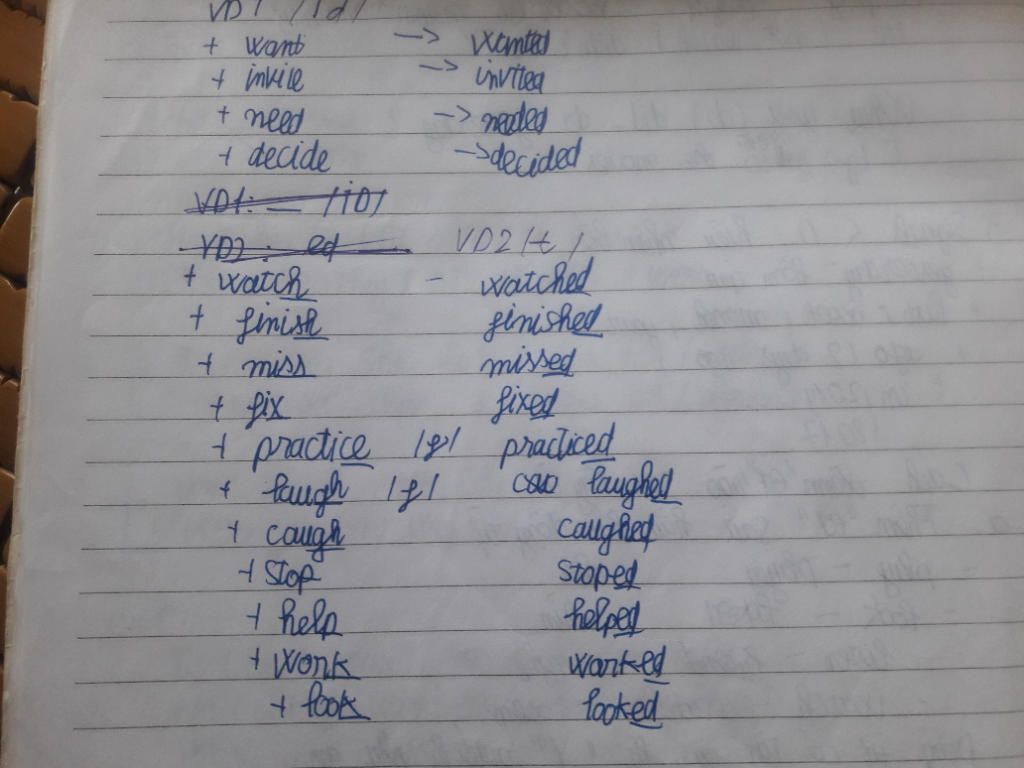 VD1 /id/
+ want -> wanted
+ invite -> invited
+ need -> needed
+ decide -> decided
VD1: — /iD/
VD2: ed VD2 /t/
+ watch - watched
+ finish finished
+ miss missed
+ fix fixed
+ practice /s/ practiced
+ laugh /f/ laughed
+ caugh caughed
+ stop stoped
+ help helped
+ work worked
+ look looked